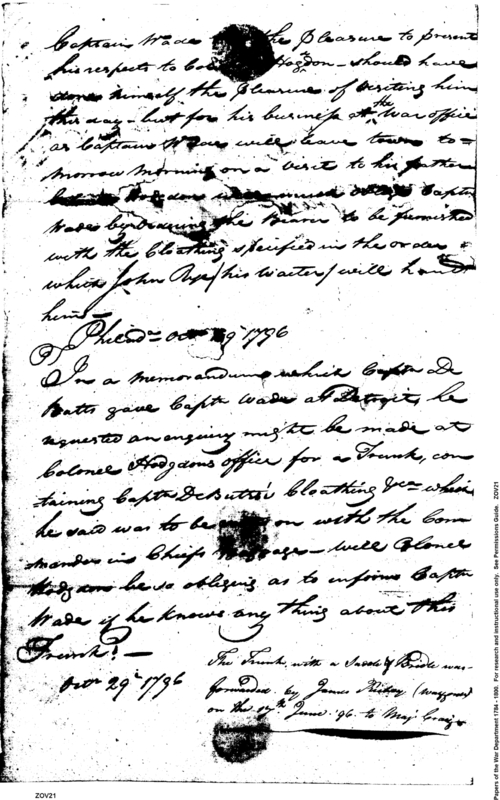 Captain Wade the Pleasure to present
his respects to Col Hogdon - should have
done himself the pleasure of visiting him
this day - but for his business at the War office
as Captain Wade will leave town to=
morrow morning on a visit to his father
Hodgdon much oblige Captn
Wade by the Bearer to be furnished
with the Cloathing specified in the order
which John (his Waiter) will hand
him -
Philada Octr 29th 1796
In a memorandum which Captn De
Butts gave Captn Wade at Detroit, he
requested an enquiry might be made at
Colonel Hodgdons office for a Trunk, con
taining Captn DeButts's Cloathing &ca which
he said was to be on with the Com
mander in Chiefs Baggage - will Colonel
Hodgdon be so obliging as to inform Captn
Wade if he knows any thing about this
Trunk? -
Octr 29th 1796
The Trunk, with a Saddle & Bridle was
forwarded by James (waggoner)
on the 17th June '96 to Majr Craig
Papers of the War Department 1784 - 1800. For research and instructional use only. See Permissions Guide. ZOV21
ZOV21